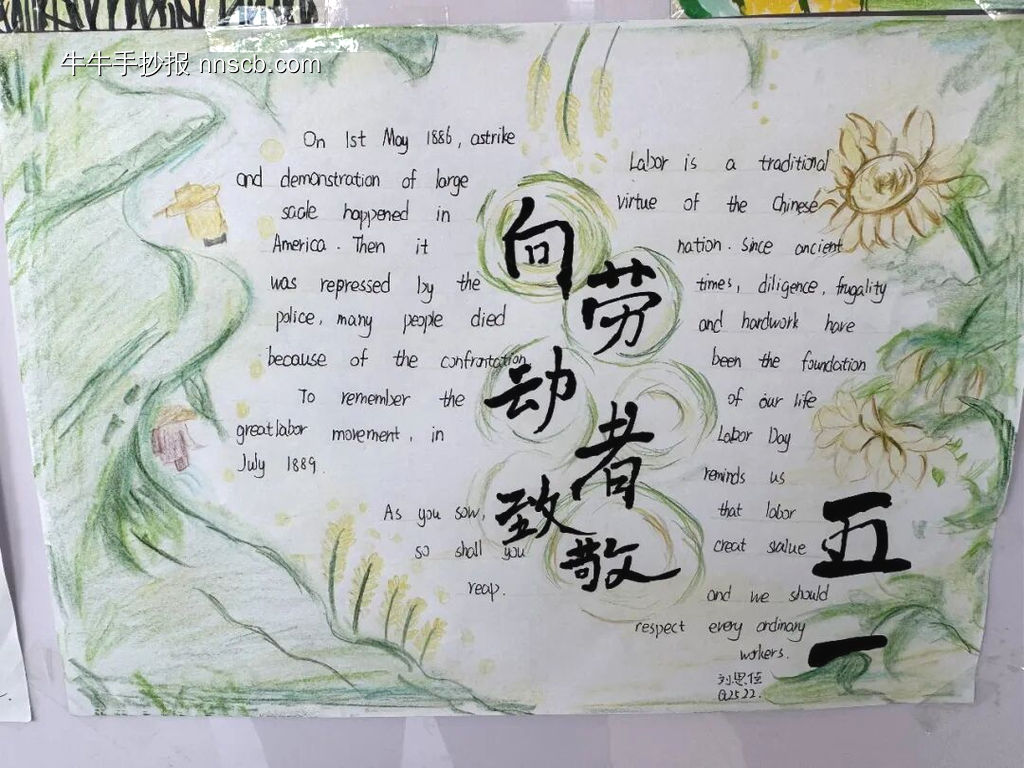 牛牛手抄报 nnscb.com
On 1st May 1886, astrike
and demonstration of large
sacle happened in
America. Then it
was repressed by the
police, many people died
because of the confrontation
To remember the
greatlabor movement, in
July 1889.
As you sow,
so shall you
reap.
向劳动者致敬
Labor is a traditional
virtue of the Chinese
nation. since ancient
times, diligence, frugality
and hardwork have
been the foundation
of our life
Labor Day
reminds us
that labor
creat svalue
and we should
respect every ordinary
workers.
五一